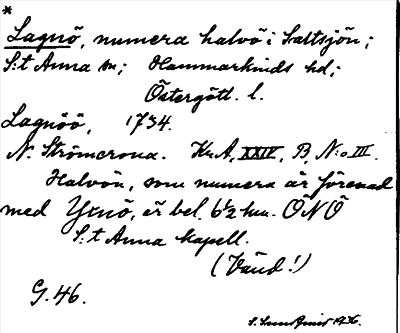 *
Lagnö, numera halvö i Saltsjön;
S:t Anna sn; Hammarkinds hd;
Östergötl. l.
Lagnöö, 1734.
N. Strömcrona. Kr. A, XXIV, B, N:o III.
Halvön, som numera är förenad
med Yxnö, är bel. 6½ km. ÖNÖ
S:t Anna kapell.
(Vänd!)
G. 46.
1936.